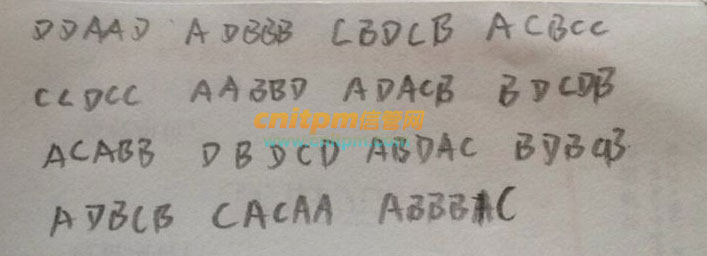 DDAAD ADBBB CBDCB ACBCC
CCDCC AABBD ADACB BDCDB
cnitpm信管网
ACABB DBDCD ABDAC
ADBCB CACAA